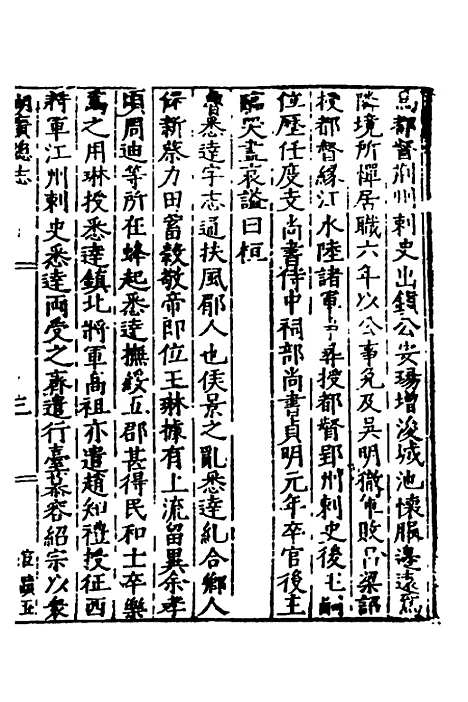 爲都督荊州刺史出鎮公安瑒增浚城池懷服邊遠爲
隣境所憚居職六年以公事免及吳明徹軍敗呂梁詔
授都督緣江水陸諸軍事尋授都督郢州刺史後主嗣
位歷任度支尚書侍中祠部尚書貞明元年卒官後主
臨哭盡哀謚曰桓
魯悉達字志通扶風郿人也侯景之亂悉達糺合鄉人
保新蔡力田蓄穀敬帝即位王琳據有上流留異余孝
頃周迪等所在蜂起悉達撫綏五郡甚得民和士卒樂
爲之用琳授悉達鎮北將軍高祖亦遣趙知禮授征西
將軍江州刺史悉達兩受之齊遣行臺慕容紹宗以衆
湖廣總志
三